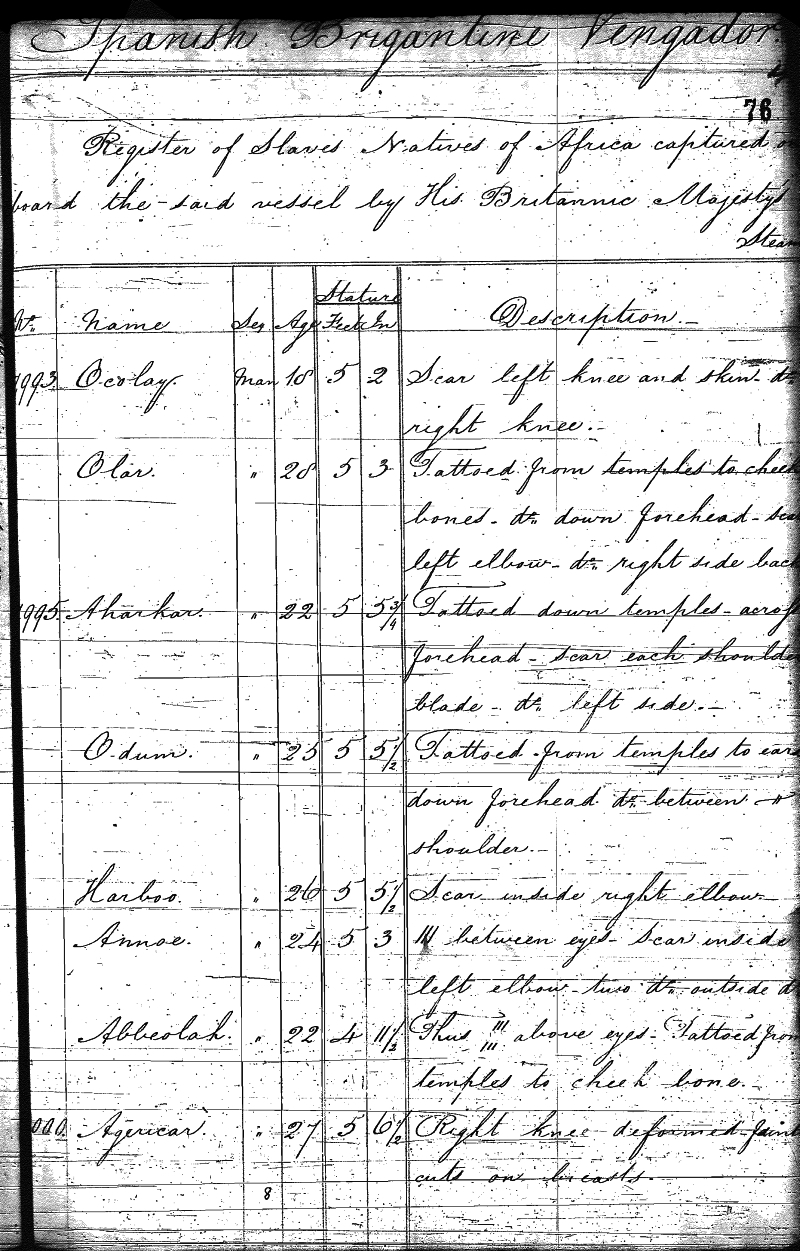 Spanish Brigantine Vengador
76
Register of Slaves Natives of Africa captured
board the said vessel by His Britannic Majesty's
Steam
No. Name Sex Age Stature Feet In Description
1993 Ocolay. Man 18 5 2 Scar left knee and skin do
right knee.
Olar. " 28 5 3 Tattoed from temples to cheek
bones - do. down forehead - scar
left elbow - do. right side back
1995. Aharkar. " 22 5 5 3/4 Tattoed down temples - across
forehead - scar each shoulder
blade - do. left side.
Odum. " 25 5 5 1/2 Tattoed from temples to ears
down forehead do. between
shoulder.
Harboo. " 26 5 5 1/2 Scar inside right elbow
Annoe. " 24 5 3 III between eyes - Scar inside
left elbow - two do. outside d
Abbeolah. " 22 4 11 1/2 Thus III III above eyes - Tattoed from
temples to cheek bone.
000. Agericar. " 27 5 6 1/2 Right knee deformed faint
cuts on breasts.
8